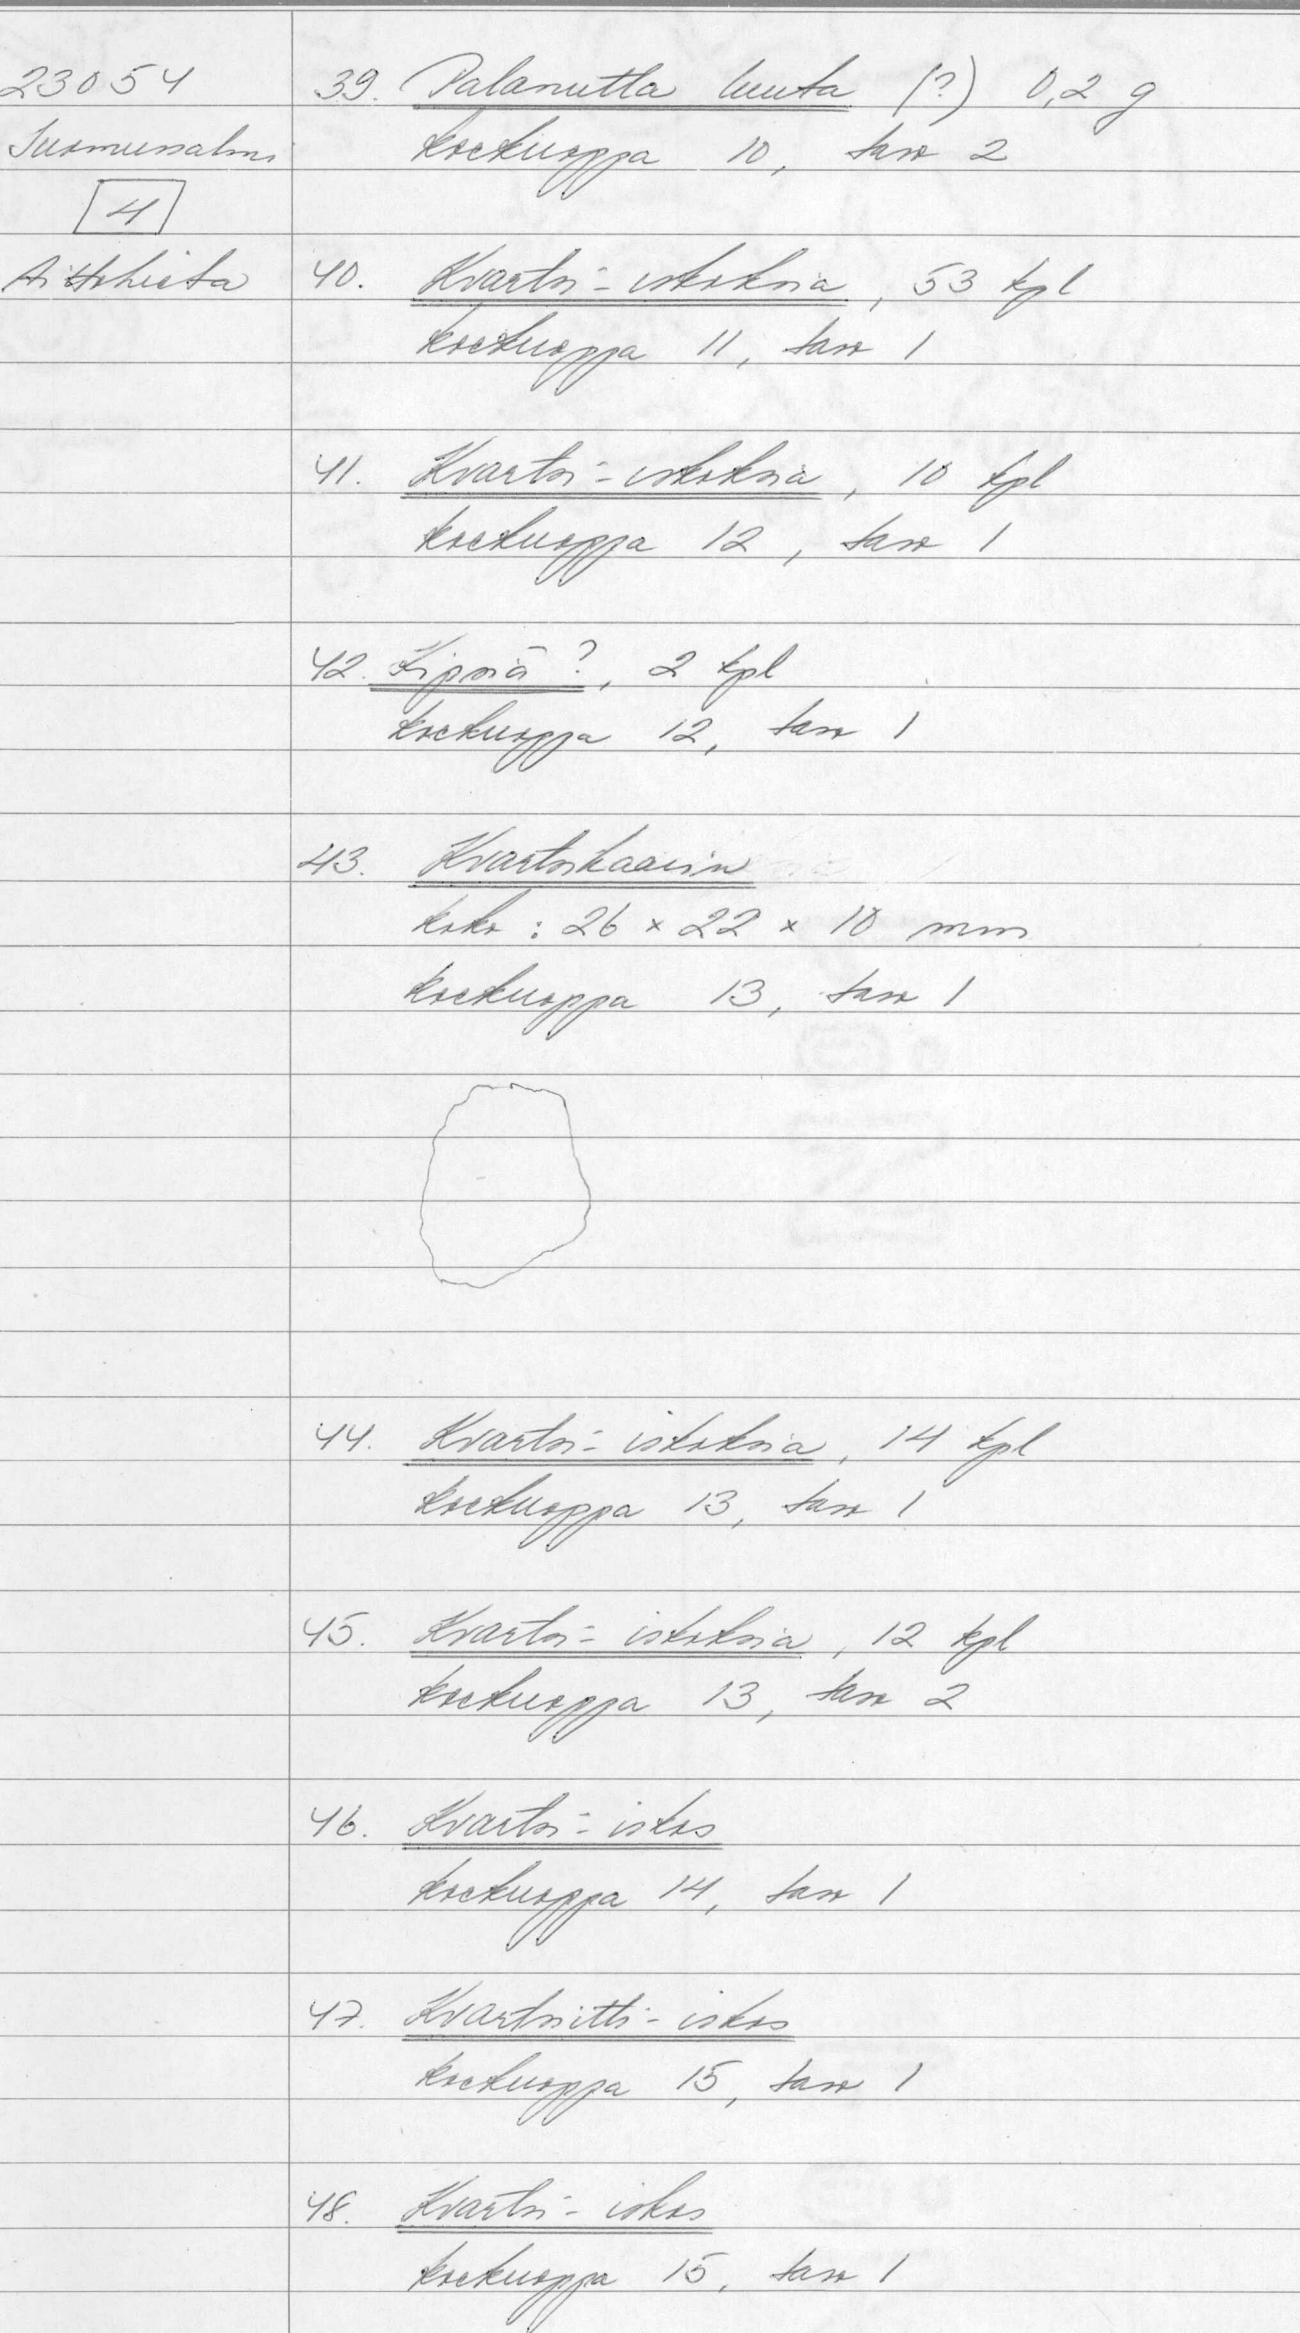 23054
Suomussalmi
4
Aittohieta
39. Palanutta luuta (?) 0,2 g
koekuoppa 10, taso 2
40. Kvartsi-iskoksia, 53 kpl
koekuoppa 11, taso 1
41. Kvartsi-iskoksia, 10 kpl
koekuoppa 12, taso 1
42. Kipsiä?, 2 kpl
koekuoppa 12, taso 1
43. Kvartsikaavin
koko: 26 x 22 x 10 mm
koekuoppa 13, taso 1
44. Kvartsi-iskoksia, 14 kpl
koekuoppa 13, taso 1
45. Kvartsi-iskoksia, 12 kpl
koekuoppa 13, taso 2
46. Kvartsi-iskos
koekuoppa 14, taso 1
47. Kvartsiitti-iskos
koekuoppa 15, taso 1
48. Kvartsi-iskos
koekuoppa 15, taso 1